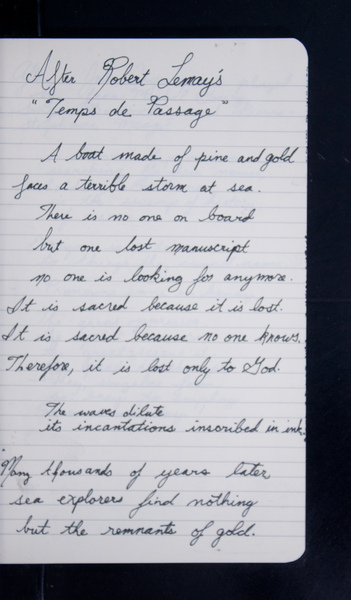 After Robert Lemay's
"Temps de Passage"
A boat made of pine and gold
faces a terrible storm at sea.
There is no one on board
but one lost manuscript
no one is looking for anymore.
It is sacred because it is lost.
It is sacred because no one knows.
Therefore, it is lost only to God.
The waves dilute
its incantations inscribed in ink.
Many thousands of years later
sea explorers find nothing
but the remnants of gold.